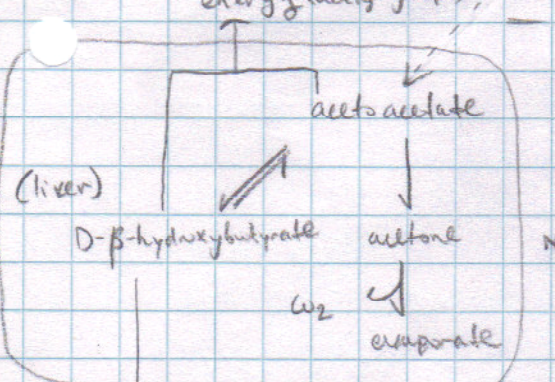 acetoacetate
(liver)
D-β-hydroxybutyrate
acetone
CO2
evaporate